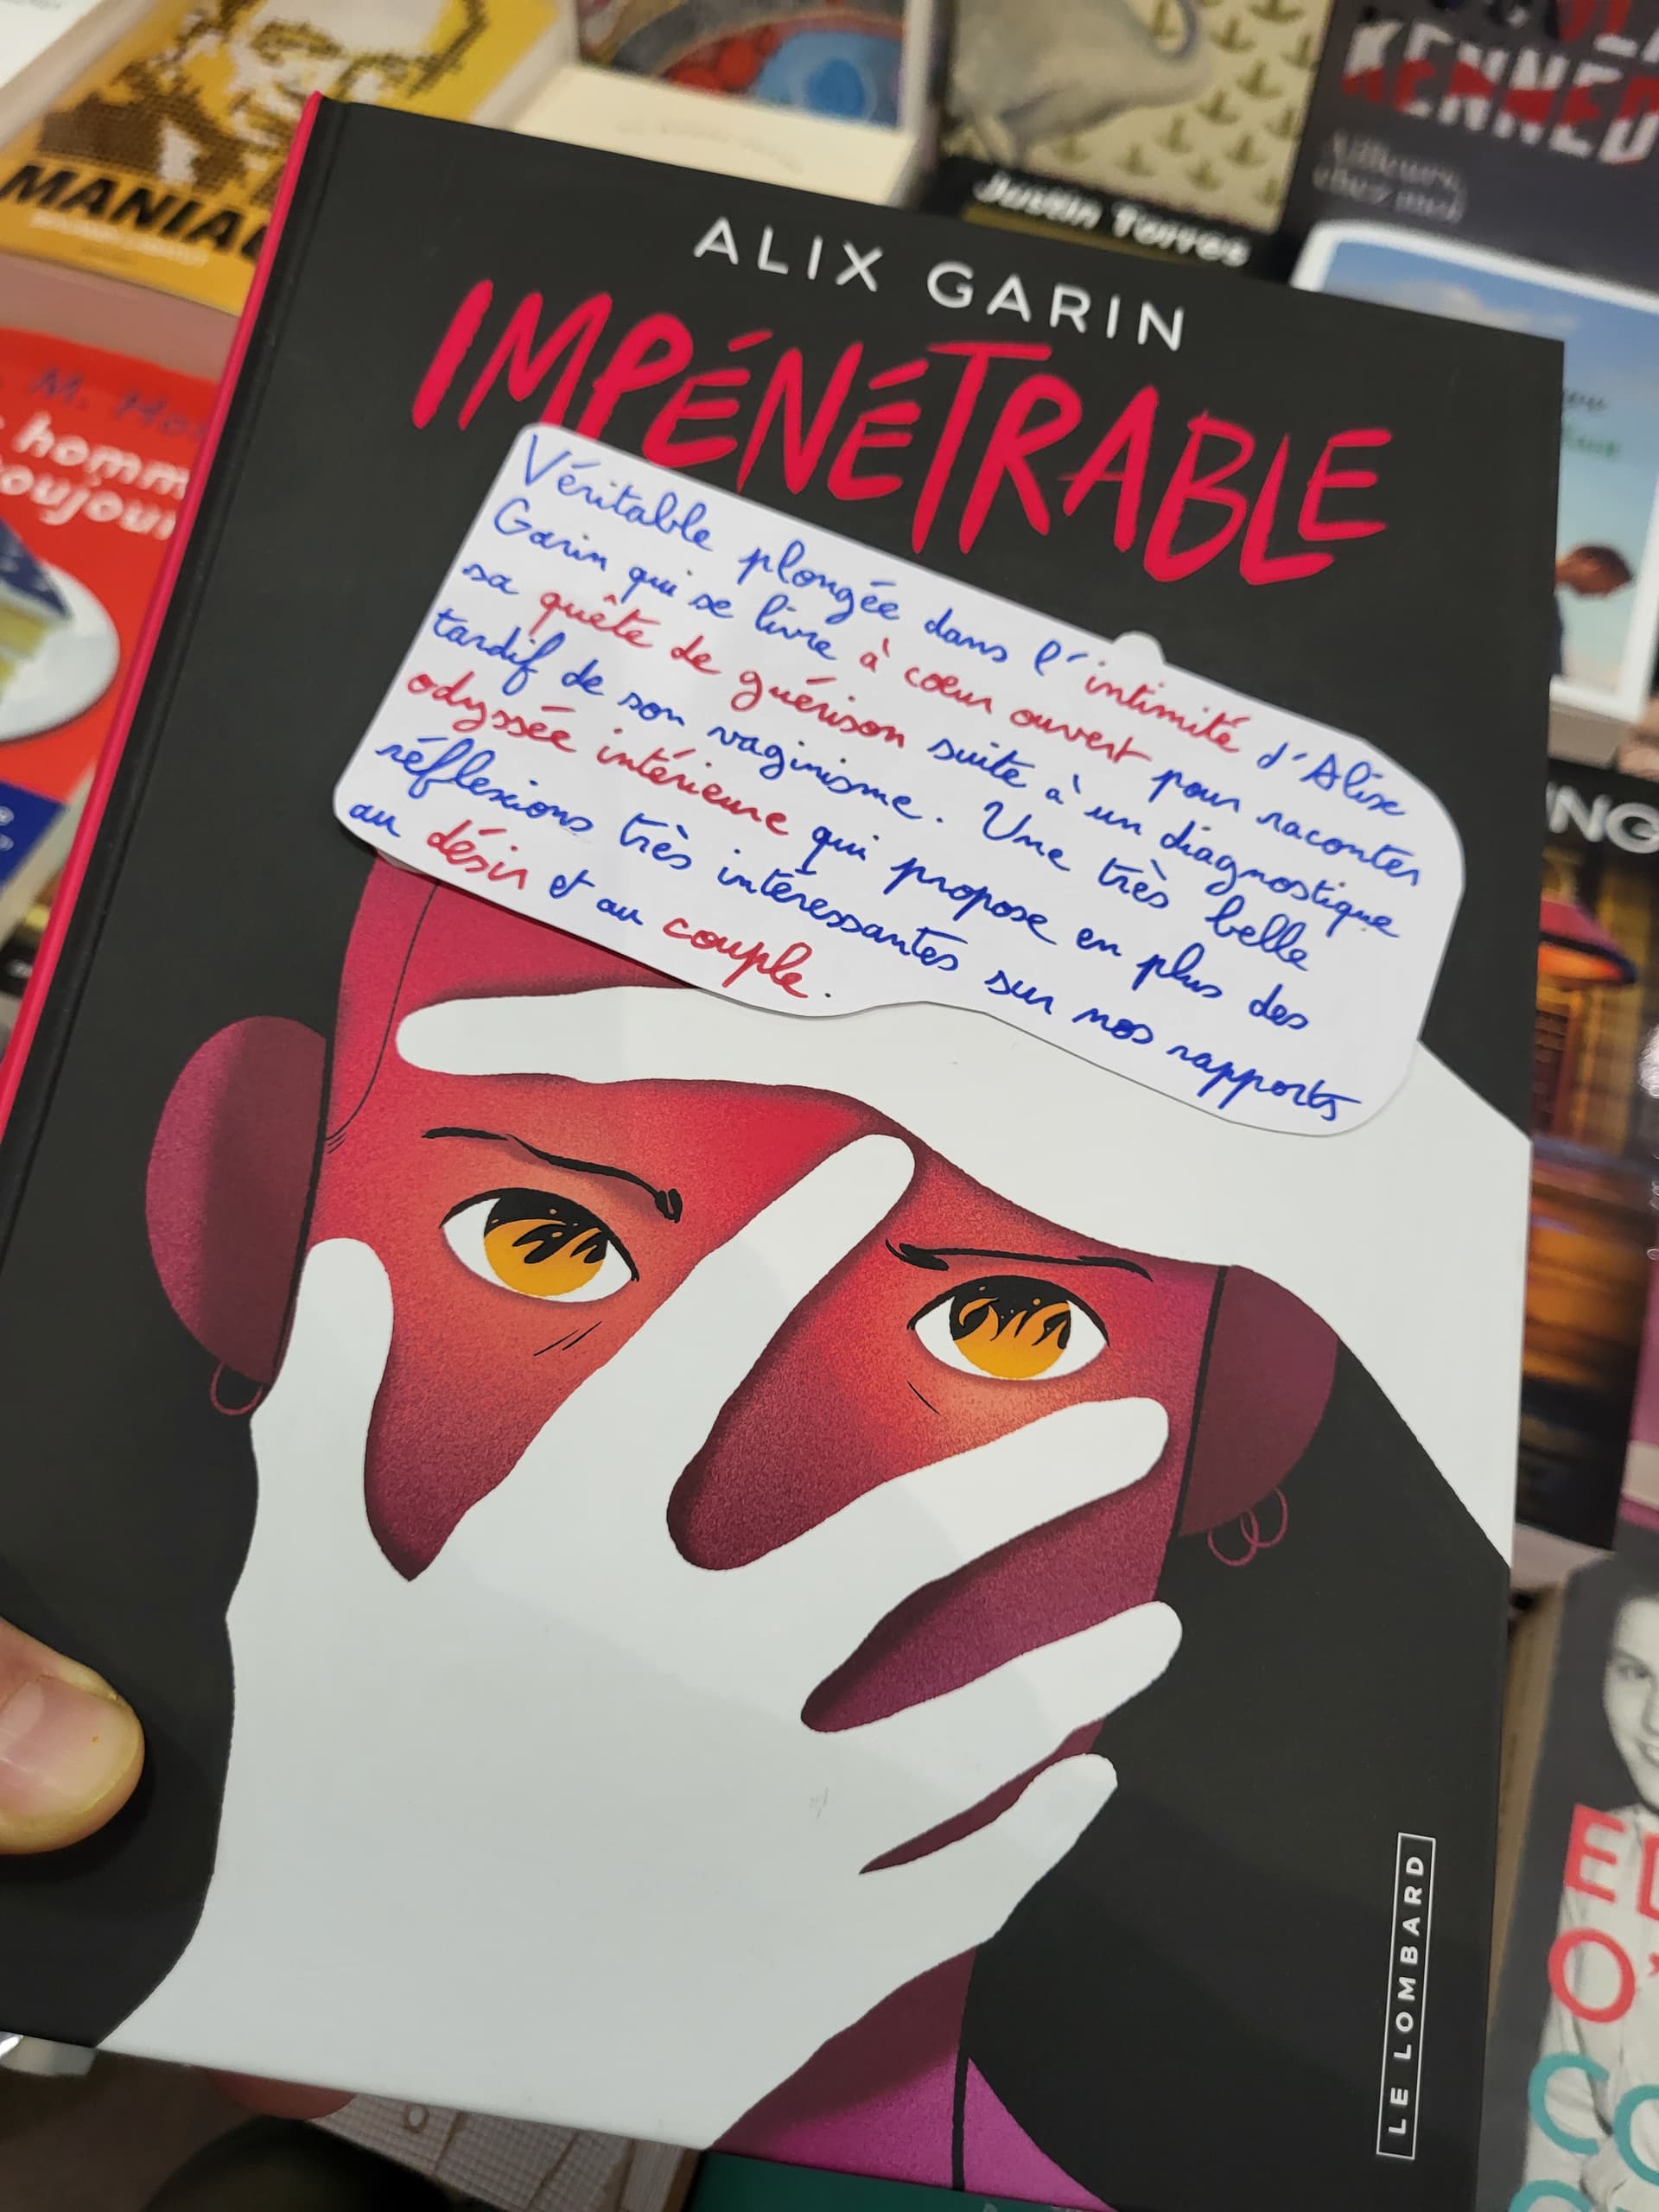 MANIAC
Justin Torres
KENNED
Ailleurs,
chez moi
ALIX GARIN
IMPÉNÉTRABLE
Véritable plongée dans l'intimité d'Alix
Garin qui se livre à cœur ouvert pour raconter
sa quête de guérison suite à un diagnostique
tardif de son vaginisme. Une très belle
odyssée intérieure qui propose en plus des
réflexions très intéressantes sur nos rapports
au désir et au couple.
M. Ho
homm
oujour
NG
LE LOMBARD
E
O'
CO